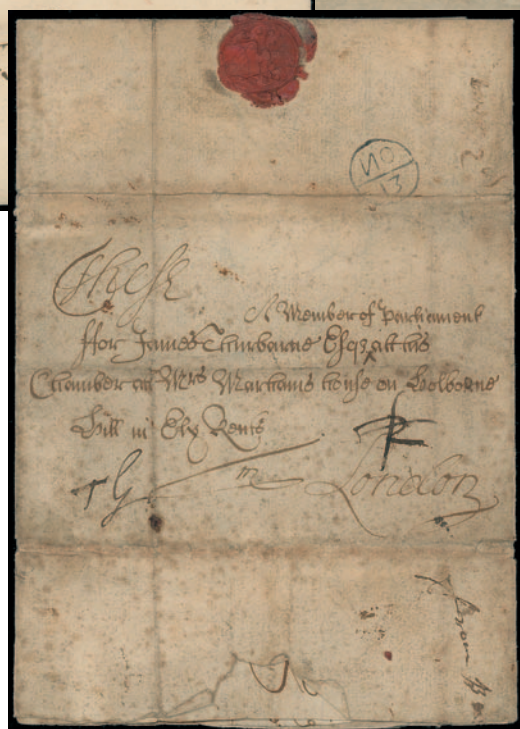 NO
13
These
A Member of Parliament
ffor James Thurbarne Esqr att his
Chamber att Mrs Martains house on Holborne
Hill in Ely Rents
in London